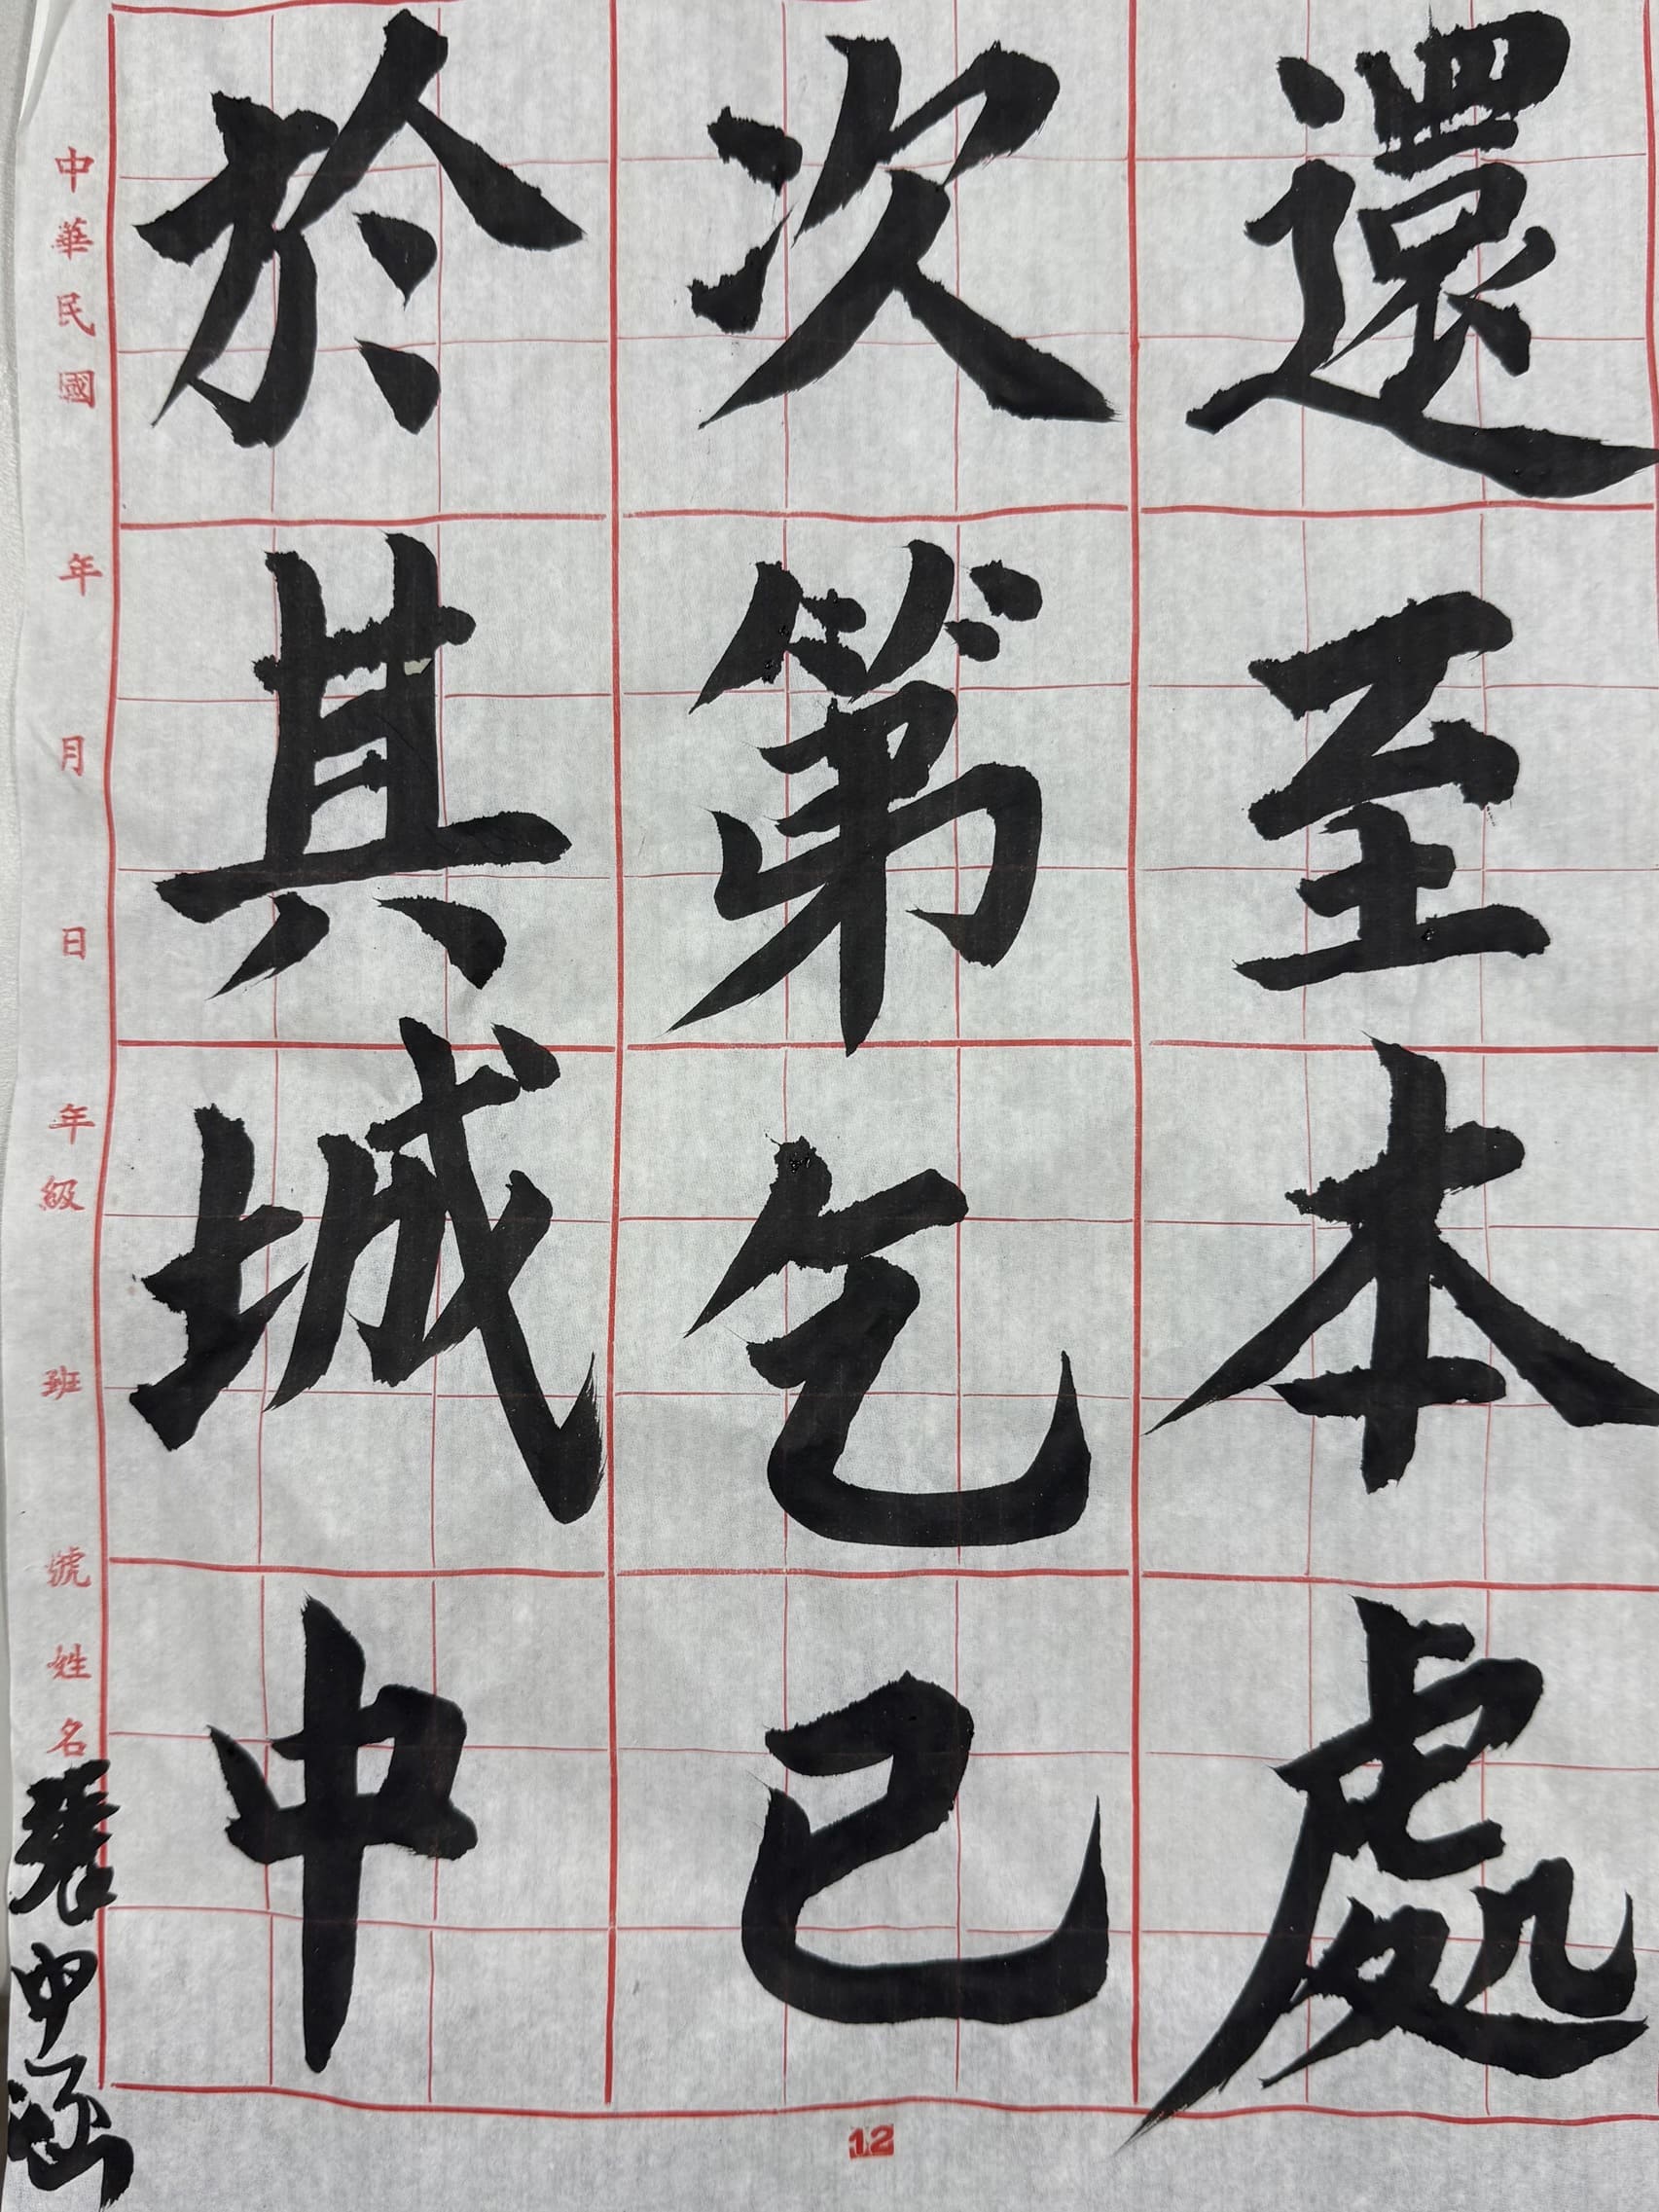 還至本處
次第乞已
於其城中
中華民國 年 月 日 年級 班 號 姓名
12